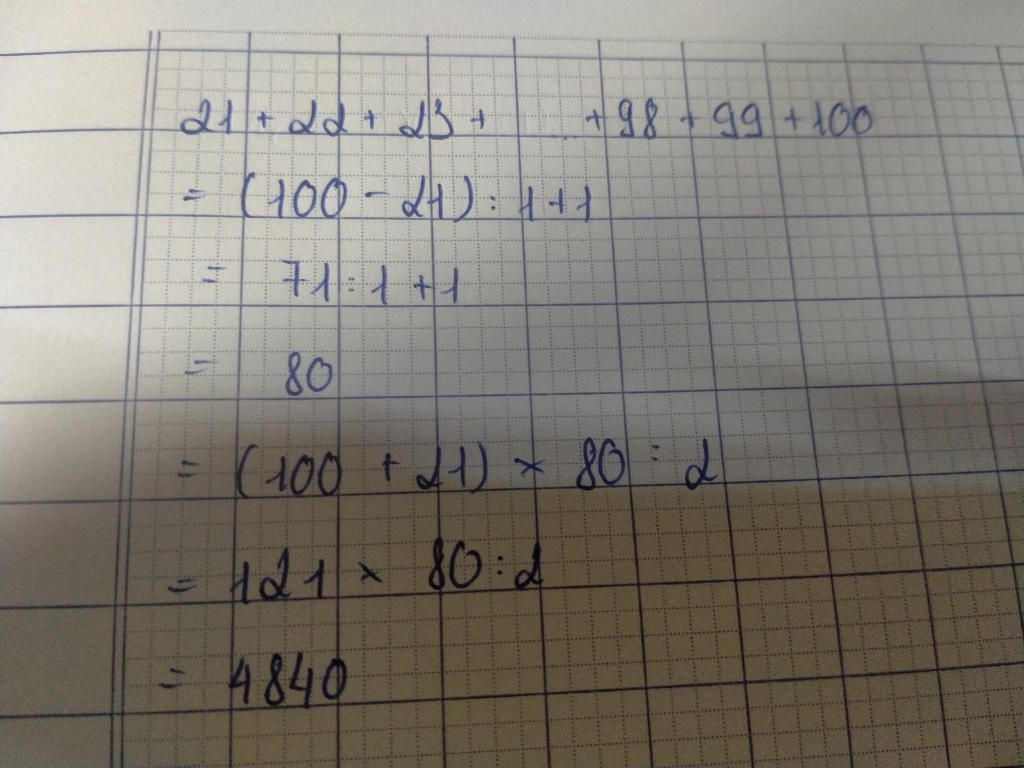 21 + 22 + 23 + ... + 98 + 99 + 100
= (100 - 21) : 1 + 1
= 71 : 1 + 1
= 80
= (100 + 21) × 80 : 2
= 121 × 80 : 2
= 4840